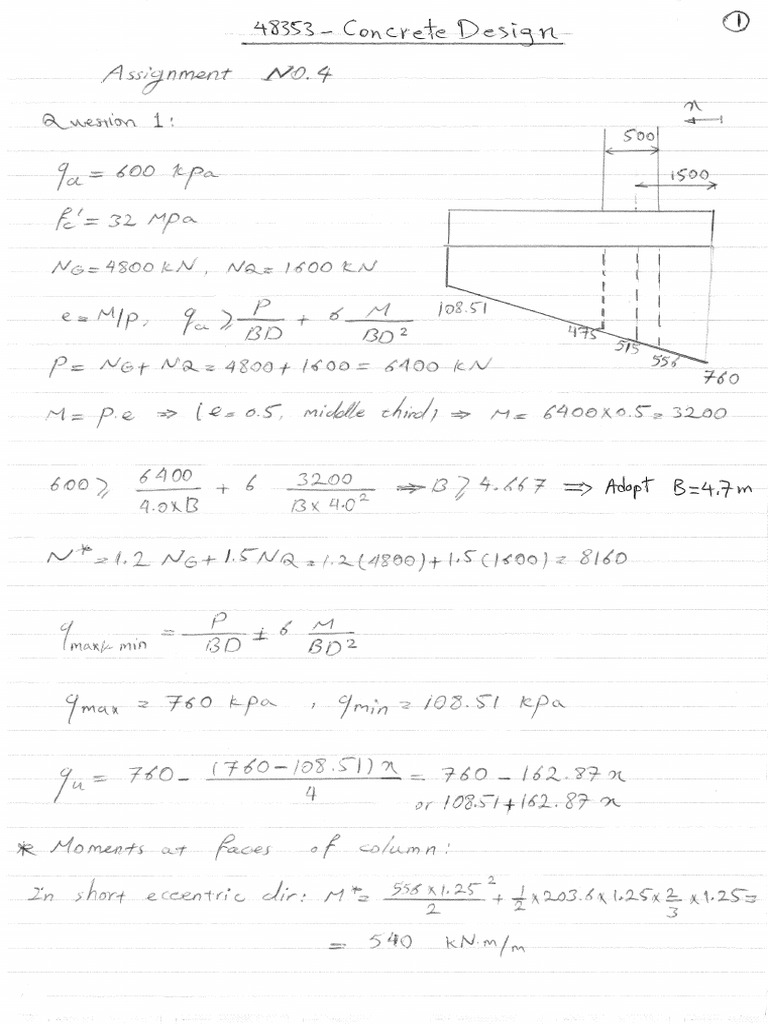 ①
48353 - Concrete Design
Assignment NO.4
Question 1:
qa = 600 kpa
fc' = 32 Mpa
NG = 4800 KN, NQ = 1600 KN
e = M/p, qa ≥ P/BD + 6 M/BD²
P = NG + NQ = 4800 + 1600 = 6400 KN
M = P.e ⇒ (e = 0.5, middle third) ⇒ M = 6400 x 0.5 = 3200
x
500
1500
108.51
475
515
556
760
600 ≥ 6400/4.0xB + 6 3200/Bx4.0² ⇒ B ≥ 4.667 ⇒ Adopt B = 4.7 m
N* = 1.2 NG + 1.5 NQ = 1.2 (4800) + 1.5 (1600) = 8160
q max & min = P/BD ± 6 M/BD²
q max = 760 kpa , q min = 108.51 kpa
qu = 760 - (760 - 108.51) x/4 = 760 - 162.87 x
or 108.51 + 162.87 x
* Moments at faces of column:
In short eccentric dir: M* = 556 x 1.25²/2 + 1/2 x 203.6 x 1.25 x 2/3 x 1.25 =
= 540 kN.m/m